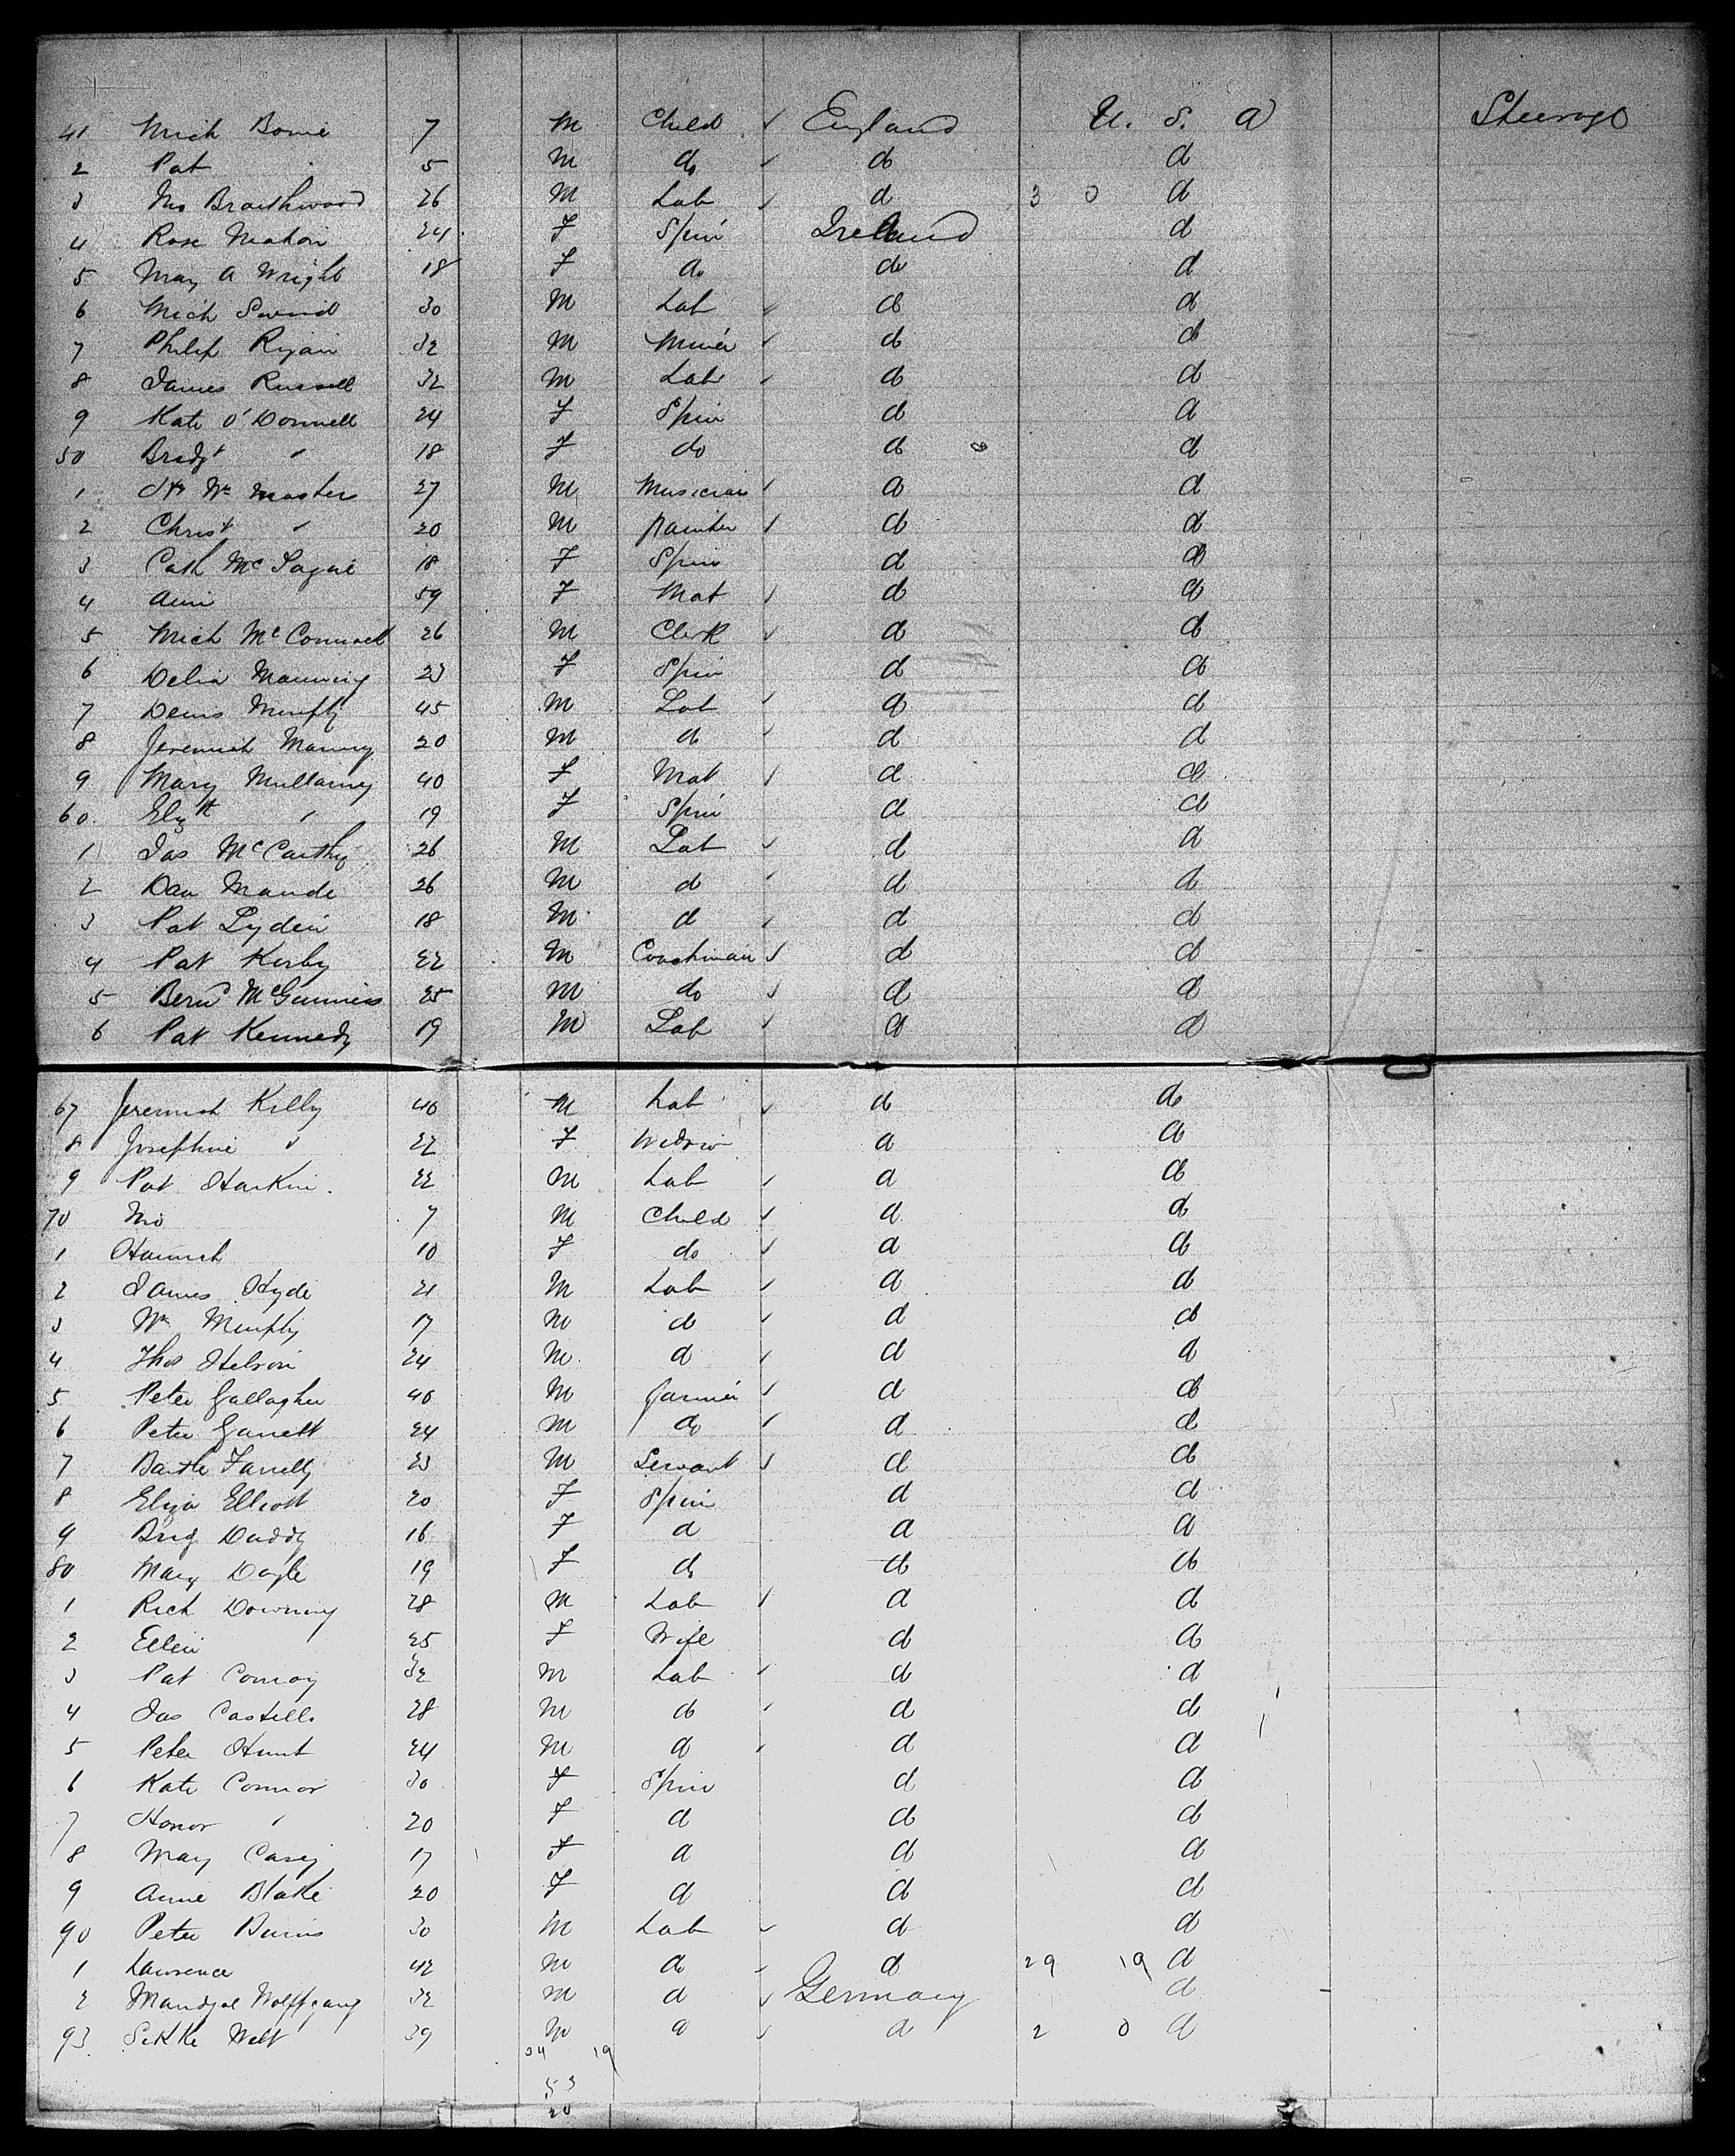 41 Mich 7 M Child England U. S. A Steerage
2 Pat 5 M do do d
3 Jno Braithwood 26 M Lab d 3 0 d
4 Rose Mahon 24 F Spin Ireland d
5 Mary A Wright 18 F do do d
6 Mich 30 M Lab do d
7 Philip Ryan 32 M Miner do do
8 James Russell 32 M Lab do d
9 Kate O'Donnell 24 F Spin do d
50 Bridgt " 18 F do do d
1 Wm Masters 27 M Musician d d
2 Christ " 20 M painter do d
3 Cath Mc 18 F Spin d do
4 Ann 59 F Mat d d
5 Mich McCormack 26 M Clerk d do
6 Delia Manning 23 F Spin d do
7 Denis Murphy 45 M Lab d d
8 Jeremiah 20 M do d d
9 Mary Mullarney 40 F Mat d do
60. Elizth " 19 F Spin d d
1 Jas McCarthy 26 M Lab d d
2 Dan Maude 26 M d d d
3 Pat Lyden 18 M d d d
4 Pat Kerby 22 M Coachman d d
5 Bernd McGuinness 25 M do d d
6 Pat Kennedy 19 M Lab d d
67 Jeremiah Kelly 40 M Lab do do
8 Josephine " 22 F Widow d d
9 Pat Harkin. 22 M Lab d do
70 Jno 7 M Child d d
1 Hannah 10 F do d do
2 James Hyde 21 M Lab d d
3 Wm Murphy 17 M do d do
4 Thos 24 M d d d
5 Peter Gallagher 40 M Farmer d do
6 Peter Garrett 24 M do d d
7 Barth Farrelly 23 M Servant d do
8 Eliza Elliott 20 F Spin d d
9 Brig Duddy 16 F d d d
80 Mary Doyle 19 F do do do
1 Rich Downing 28 M Lab d d
2 Ellen 25 F Wife d do
3 Pat Conroy 32 M Lab d d
4 Jas Castello 28 M do d do
5 Peter Hunt 24 M d d d
6 Kate Connor 30 F Spin d d
7 Honor " 20 F d do do
8 Mary Casey 17 F d d d
9 Anne Blake 20 F d d d
90 Peter Burns 30 M Lab d d
1 Lawrence 42 M do d 29 19 d
2 Wolffgang 32 M d Germany d
93. 39 M d d 2 0 d
34 19
53
20